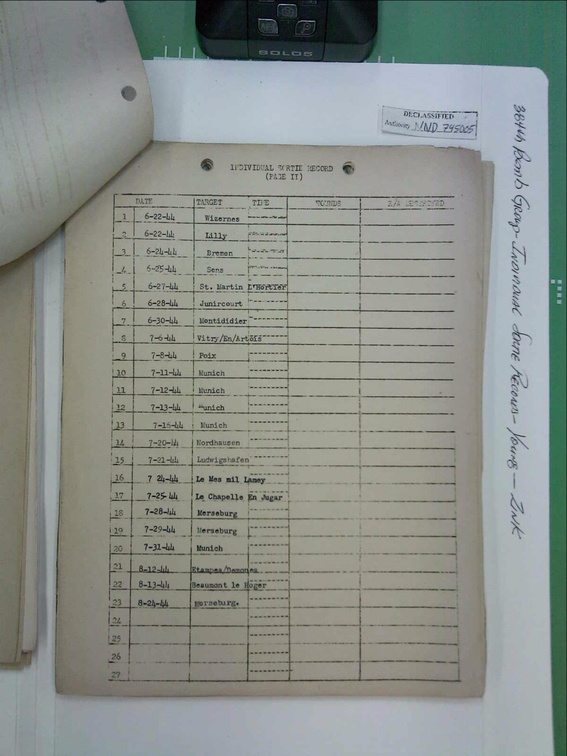 SOLDS
DECLASSIFIED
Authority NND 745005
INDIVIDUAL SORTIE RECORD
(PAGE II)
DATE TARGET TIME WOUNDS E/A DESTROYED
1 6-22-44 Wizernes
2 6-22-44 Lilly
3 6-24-44 Bremen
4 6-25-44 Sens
5 6-27-44 St. Martin L'Hortier
6 6-28-44 Junircourt
7 6-30-44 Montididier
8 7-6-44 Vitry/En/Artois
9 7-8-44 Poix
10 7-11-44 Munich
11 7-12-44 Munich
12 7-13-44 Munich
13 7-16-44 Munich
14 7-20-44 Nordhausen
15 7-21-44 Ludwigshafen
16 7 24-44 Le Mes mil Lamey
17 7-25-44 Le Chapelle En Jugar
18 7-28-44 Merseburg
19 7-29-44 Merseburg
20 7-31-44 Munich
21 8-12-44 Etampes/
22 8-13-44 Beaumont le Roger
23 8-24-44 Merseburg.
24
25
26
27
384th Bomb Group - Individual Sortie Records - Young - Zink